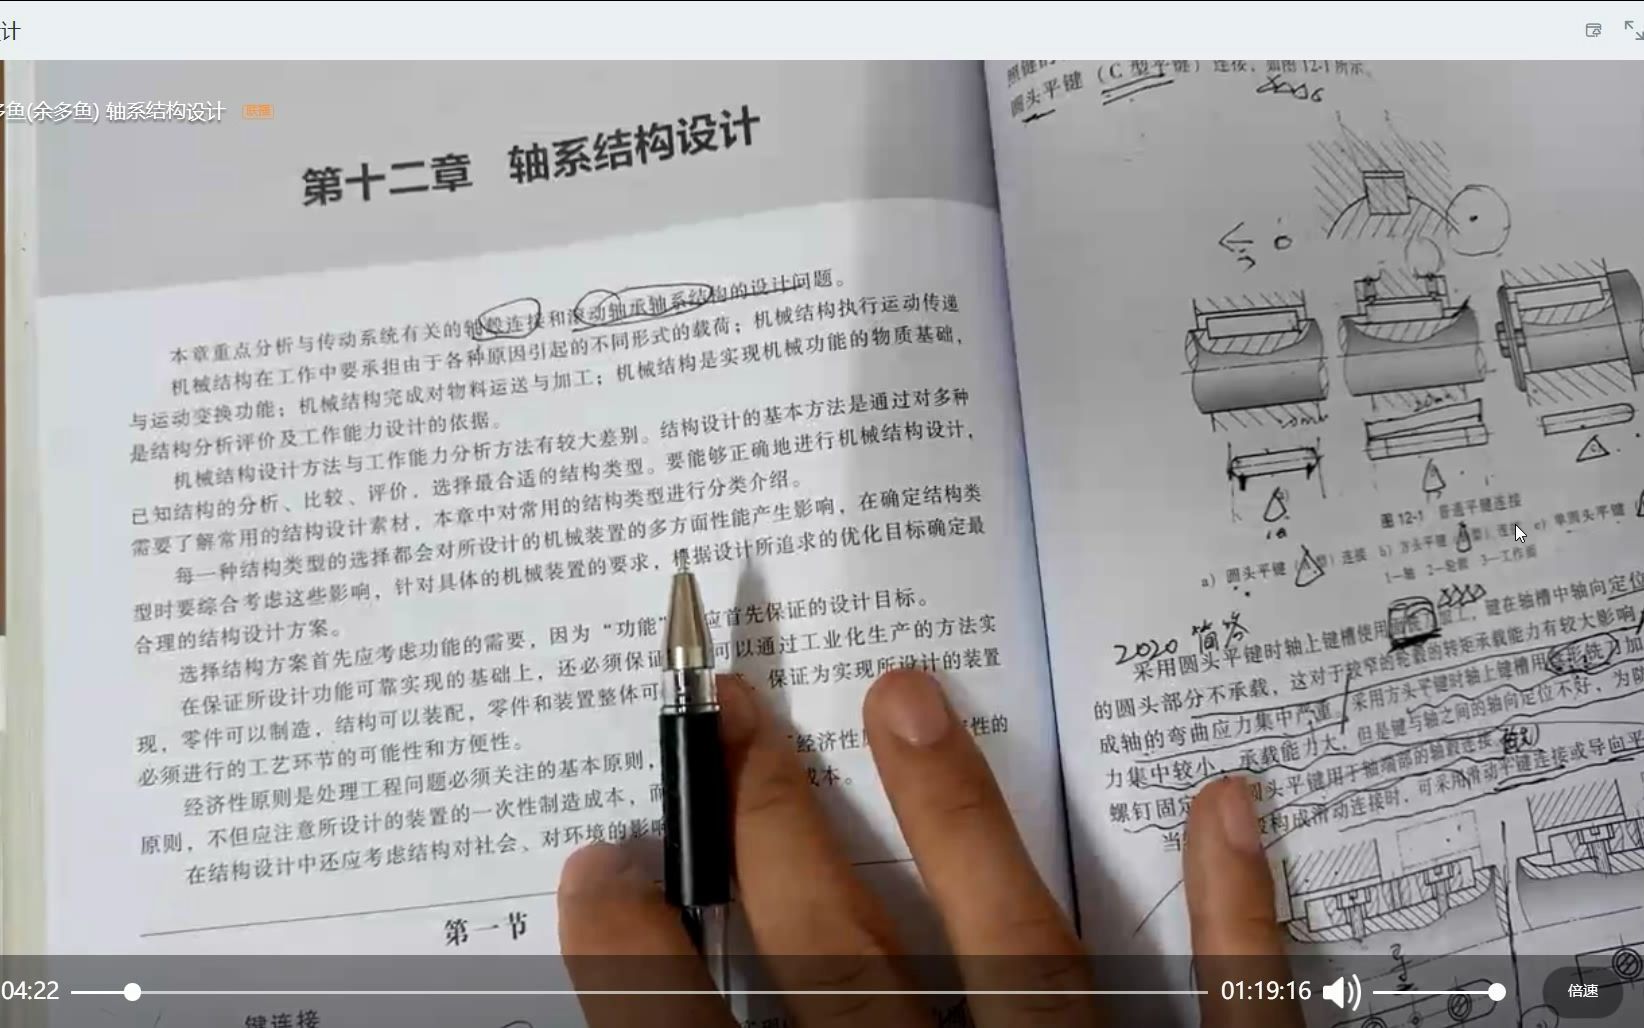 计
多鱼(余多鱼) 轴系结构设计
联播
第十二章 轴系结构设计
本章重点分析与传动系统有关的轴毂连接和滚动轴承轴系结构的设计问题。
机械结构在工作中要承担由于各种原因引起的不同形式的载荷；机械结构执行运动传递
与运动变换功能；机械结构完成对物料运送与加工；机械结构是实现机械功能的物质基础，
是结构分析评价及工作能力设计的依据。
机械结构设计方法与工作能力分析方法有较大差别。结构设计的基本方法是通过对多种
已知结构的分析、比较、评价，选择最合适的结构类型。要能够正确地进行机械结构设计，
需要了解常用的结构设计素材，本章中对常用的结构类型进行分类介绍。
每一种结构类型的选择都会对所设计的机械装置的多方面性能产生影响，在确定结构类
型时要综合考虑这些影响，针对具体的机械装置的要求，根据设计所追求的优化目标确定最
合理的结构设计方案。
选择结构方案首先应考虑功能的需要，因为“功能” 应首先保证的设计目标。
在保证所设计功能可靠实现的基础上，还必须保证 可以通过工业化生产的方法实
现，零件可以制造，结构可以装配，零件和装置整体可 ，保证为实现所设计的装置
必须进行的工艺环节的可能性和方便性。
经济性原则是处理工程问题必须关注的基本原则， 经济性 性的
原则，不但应注意所设计的装置的一次性制造成本，而 成本。
在结构设计中还应考虑结构对社会、对环境的影响
第一节
键连接
圆头平键（C 型平键）连接，如图 12-1 所示。
20mm
图 12-1 普通平键连接
a）圆头平键 型）连接 b）方头平键 型）连接 c）单圆头平键
1—轴 2—轮毂 3—工作面
2020 简答
采用圆头平键时轴上键槽使用 加工，键在轴槽中轴向定位
的圆头部分不承载，这对于较窄的轮毂的转矩承载能力有较大影响，
成轴的弯曲应力集中严重。采用方头平键时轴上键槽用盘形铣刀加
力集中较小，承载能力大，但是键与轴之间的轴向定位不好，为防
螺钉固定 圆头平键用于轴端部的轴毂连接。
当 构成滑动连接时，可采用滑动平键连接或导向平
04:22
01:19:16
倍速